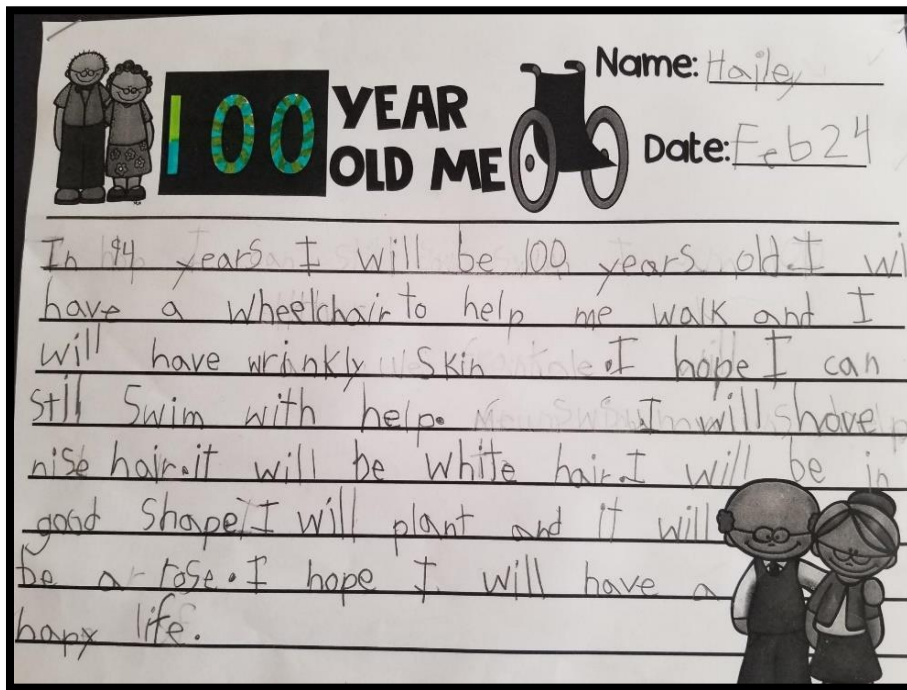 100 YEAR OLD ME
Name: Hailey
Date: Feb 24
In 94 years I will be 100 years old. I wi
have a wheelchair to help me walk and I
will have wrinkly skin. I hope I can
still Swim with help. I will have
nise hair. it will be white hair. I will be in
good shape. I will plant and it will
be a rose. I hope I will have a
hapy life.